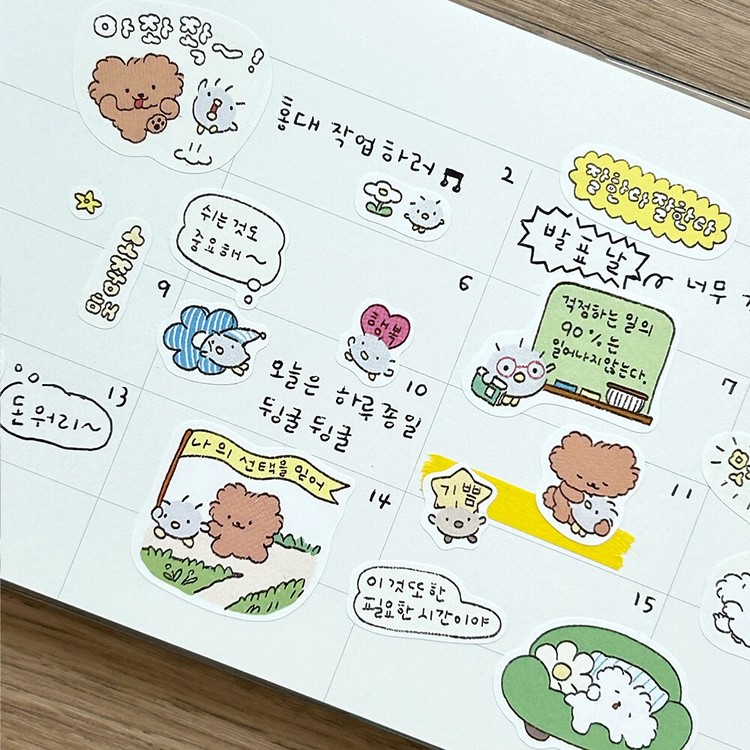 아좌좍~!
홍대 작업 하러
2
잘한다 잘한다
쉬는 것도
중요해~
발표 날
너무
6
9
행복
걱정하는 일의
90%는
일어나지않는다.
7
오늘은 하루 종일
뒹굴 뒹굴
10
13
돈워리~
나의 선택을 믿어
14
기쁨
11
이것또한
필요한 시간이야
15